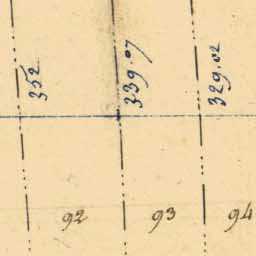 352
339.07
329.02
92 93 94